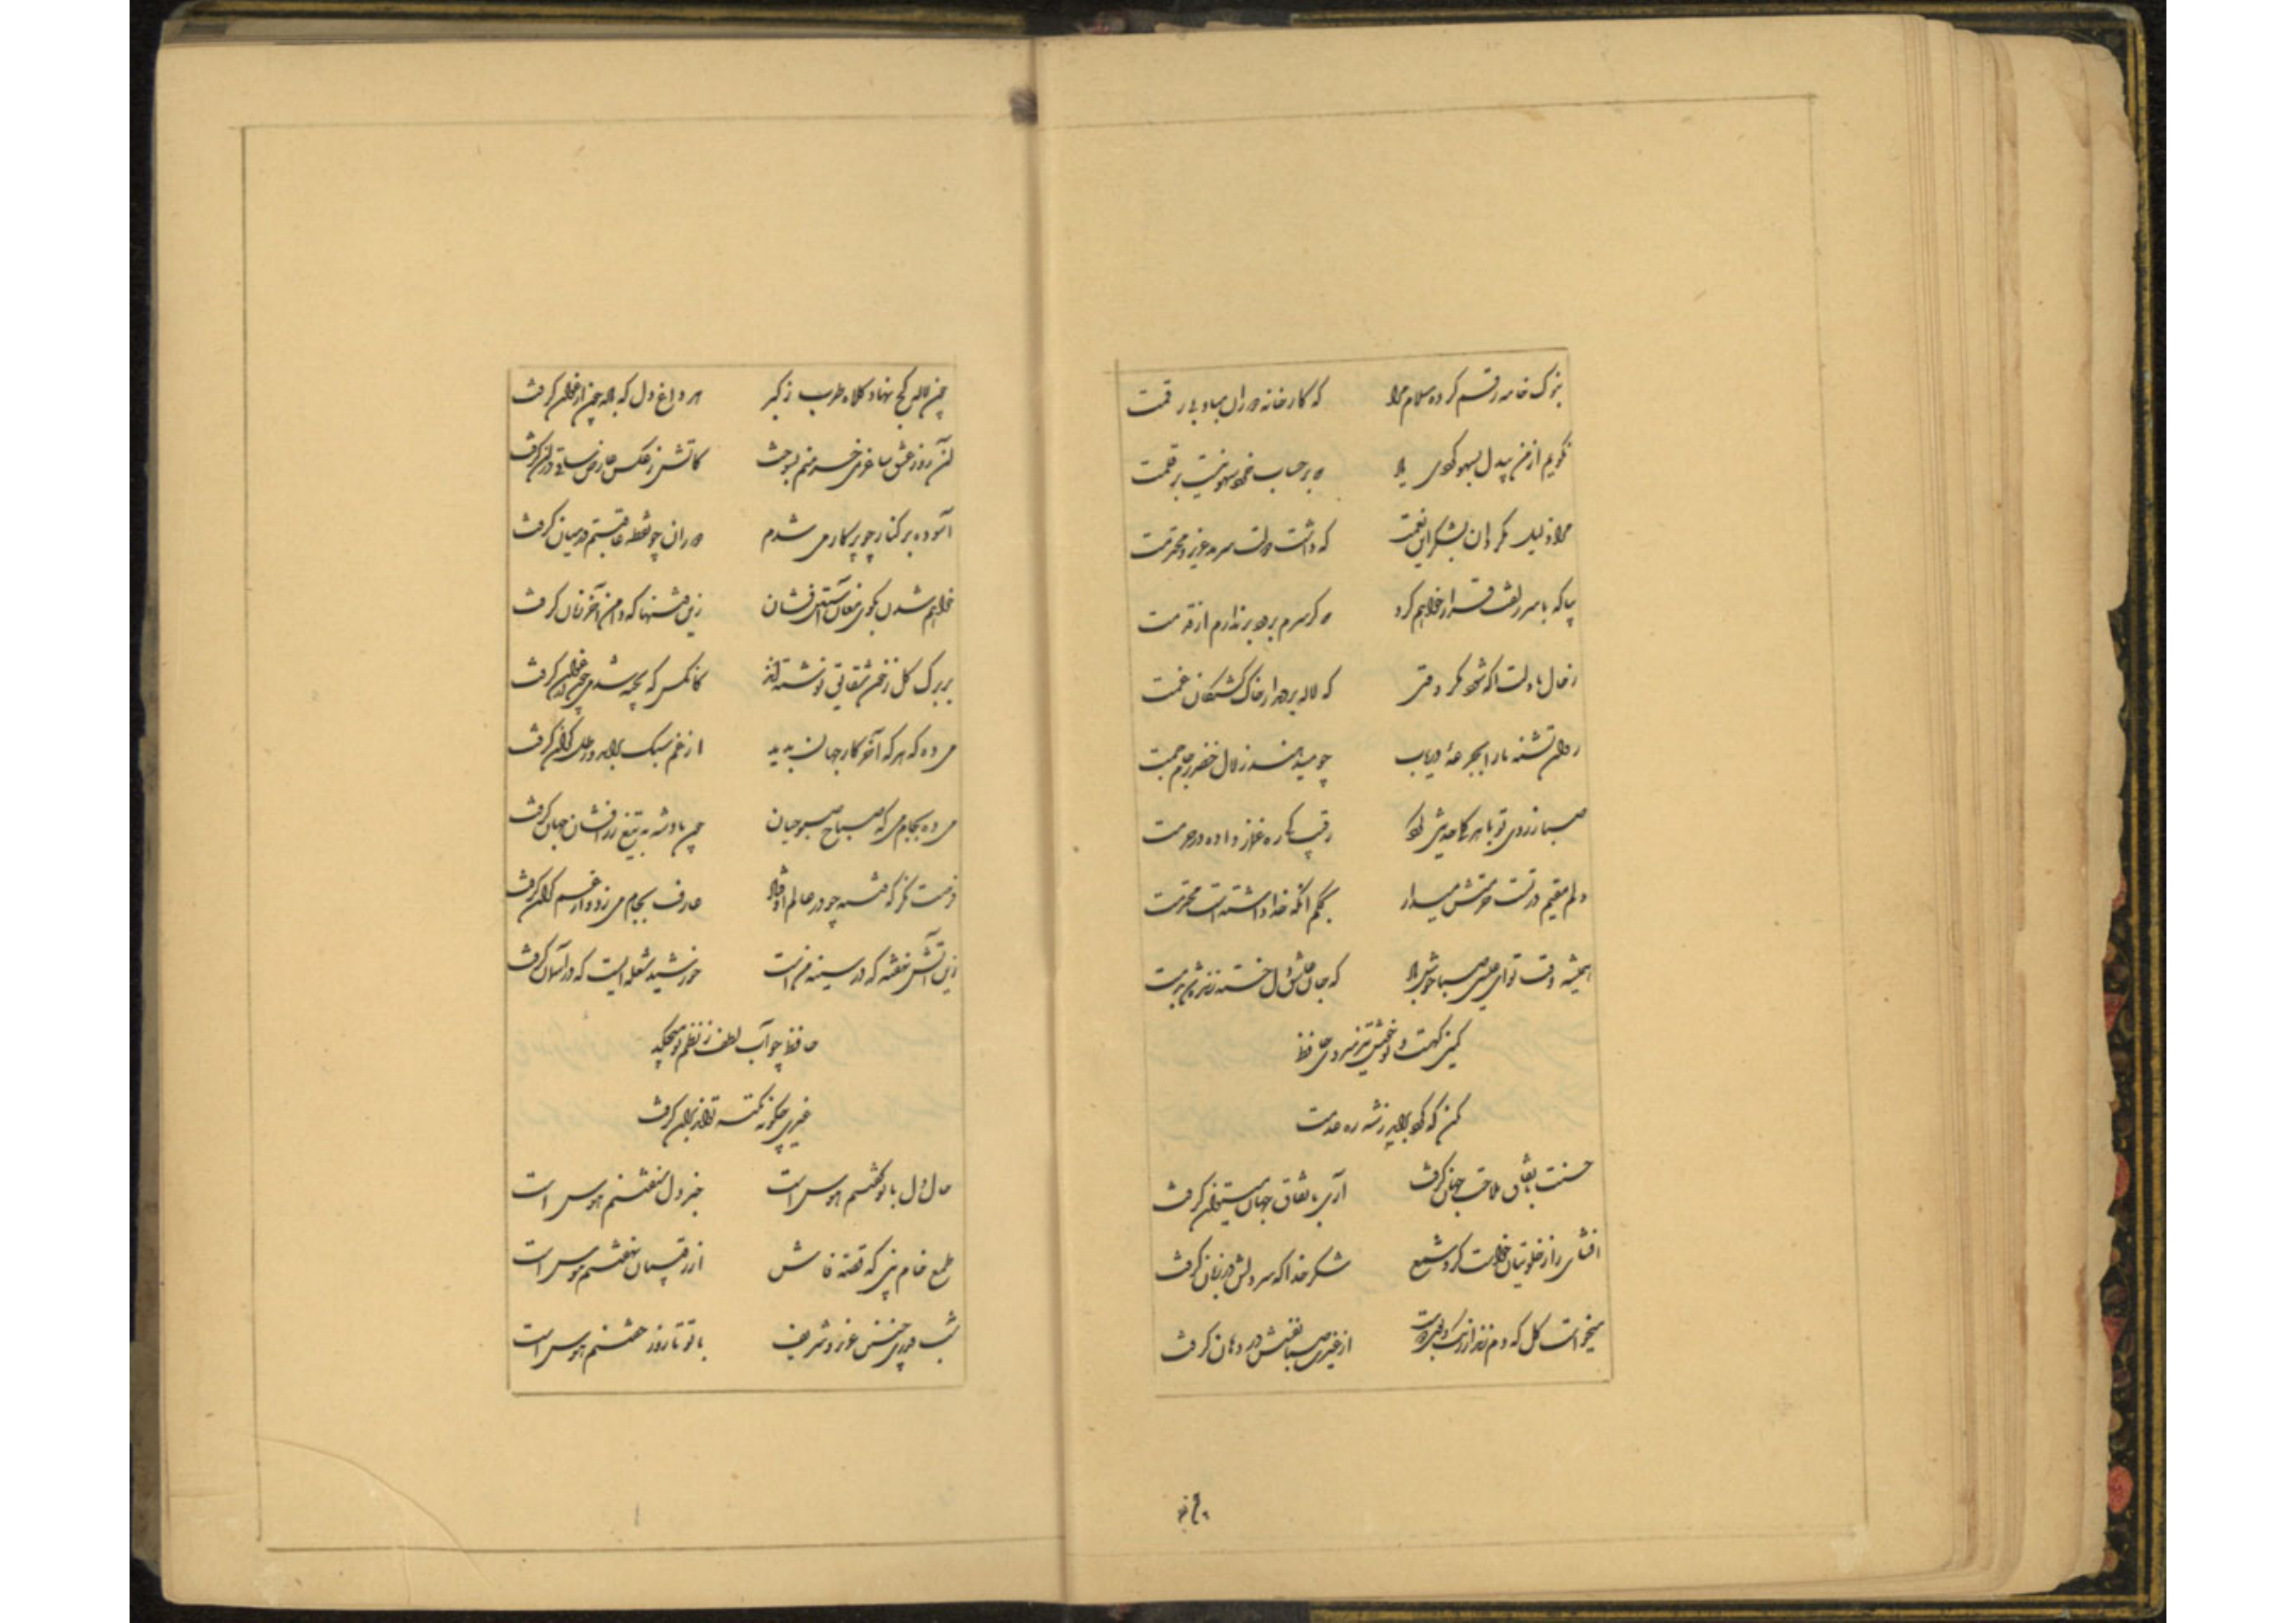 بنوک خامه رقم کرده سلام مرا که کارخانه دوران مباد بی رقمت
نگویم از من بیدل بسهو کردی یاد که در حساب خرد سهو نیست بر قلمت
مرا ذلیل مگردان بشکر این نعمت که داشت دولت سرمد عزیز و محترمت
بیا که با سر زلفت قرار خواهم کرد که گر سرم برود برندارم از قدمت
ز حال ما دلت آگه شود مگر وقتی که لاله بردمد از خاک کشتگان غمت
روان تشنه ما را بجرعه دریاب چو میدهند زلال خضر ز جام جمت
صبا ز زوی تو با هر گل حدیثی کرد رقیب کی ره غماز داده در حرمت
دلم مقیم در تست حرمتش میدار بشکر آنکه خدا داشته است محترمت
همیشه وقت تو ای عیسی صبا خوش باد که جان عاشق دل خسته زنده شد بدمت
کمین گهست و تو خوش تیز میروی حافظ
مکن که گرد برآید ز شه ره عدمت
حسنت باتفاق ملاحت جهان گرفت آری باتفاق جهان میتوان گرفت
افشای راز خلوتیان خواست کرد شمع شکر خدا که سر دلش در زبان گرفت
میخواست گل که دم زند از رنگ و بوی دوست از غیرت صبا نفسش در دهان گرفت
چون لاله کج نهاد کلاه طرب ز کبر هر داغ دل که باده چون ارغوان گرفت
آن روز عشق ساغر می خرمنم بسوخت کاتش ز عکس عارض ساقی در آن گرفت
آسوده بر کنار چو پرکار می شدم دوران چو نقطه عاقبتم در میان گرفت
خواهم شدن بکوی مغان آستین فشان زین فتنها که دامن آخر زمان گرفت
بر برگ گل ز خون شقایق نوشته اند کانکس که پخته شد می چون ارغوان گرفت
می ده که هر که آخر کار جهان بدید از غم سبک برآمد و رطل گران گرفت
می ده بجام می که صباح صبوحیان چون پادشه به تیغ زرافشان جهان گرفت
فرصت نگر که فتنه چو در عالم اوفتاد عارف بجام می زد و از غم کران گرفت
زین آتش نهفته که در سینه من است خورشید شعله ایست که در آسمان گرفت
حافظ چو آب لطف ز نظم تو میچکد
غیری چگونه نکته تواند بر آن گرفت
حال دل با تو گفتنم هوس است خبر دل شنفتنم هوس است
طمع خام بین که قصه فاش از رقیبان نهفتنم هوس است
شب قدری چنین عزیز و شریف با تو تا روز خفتنم هوس است